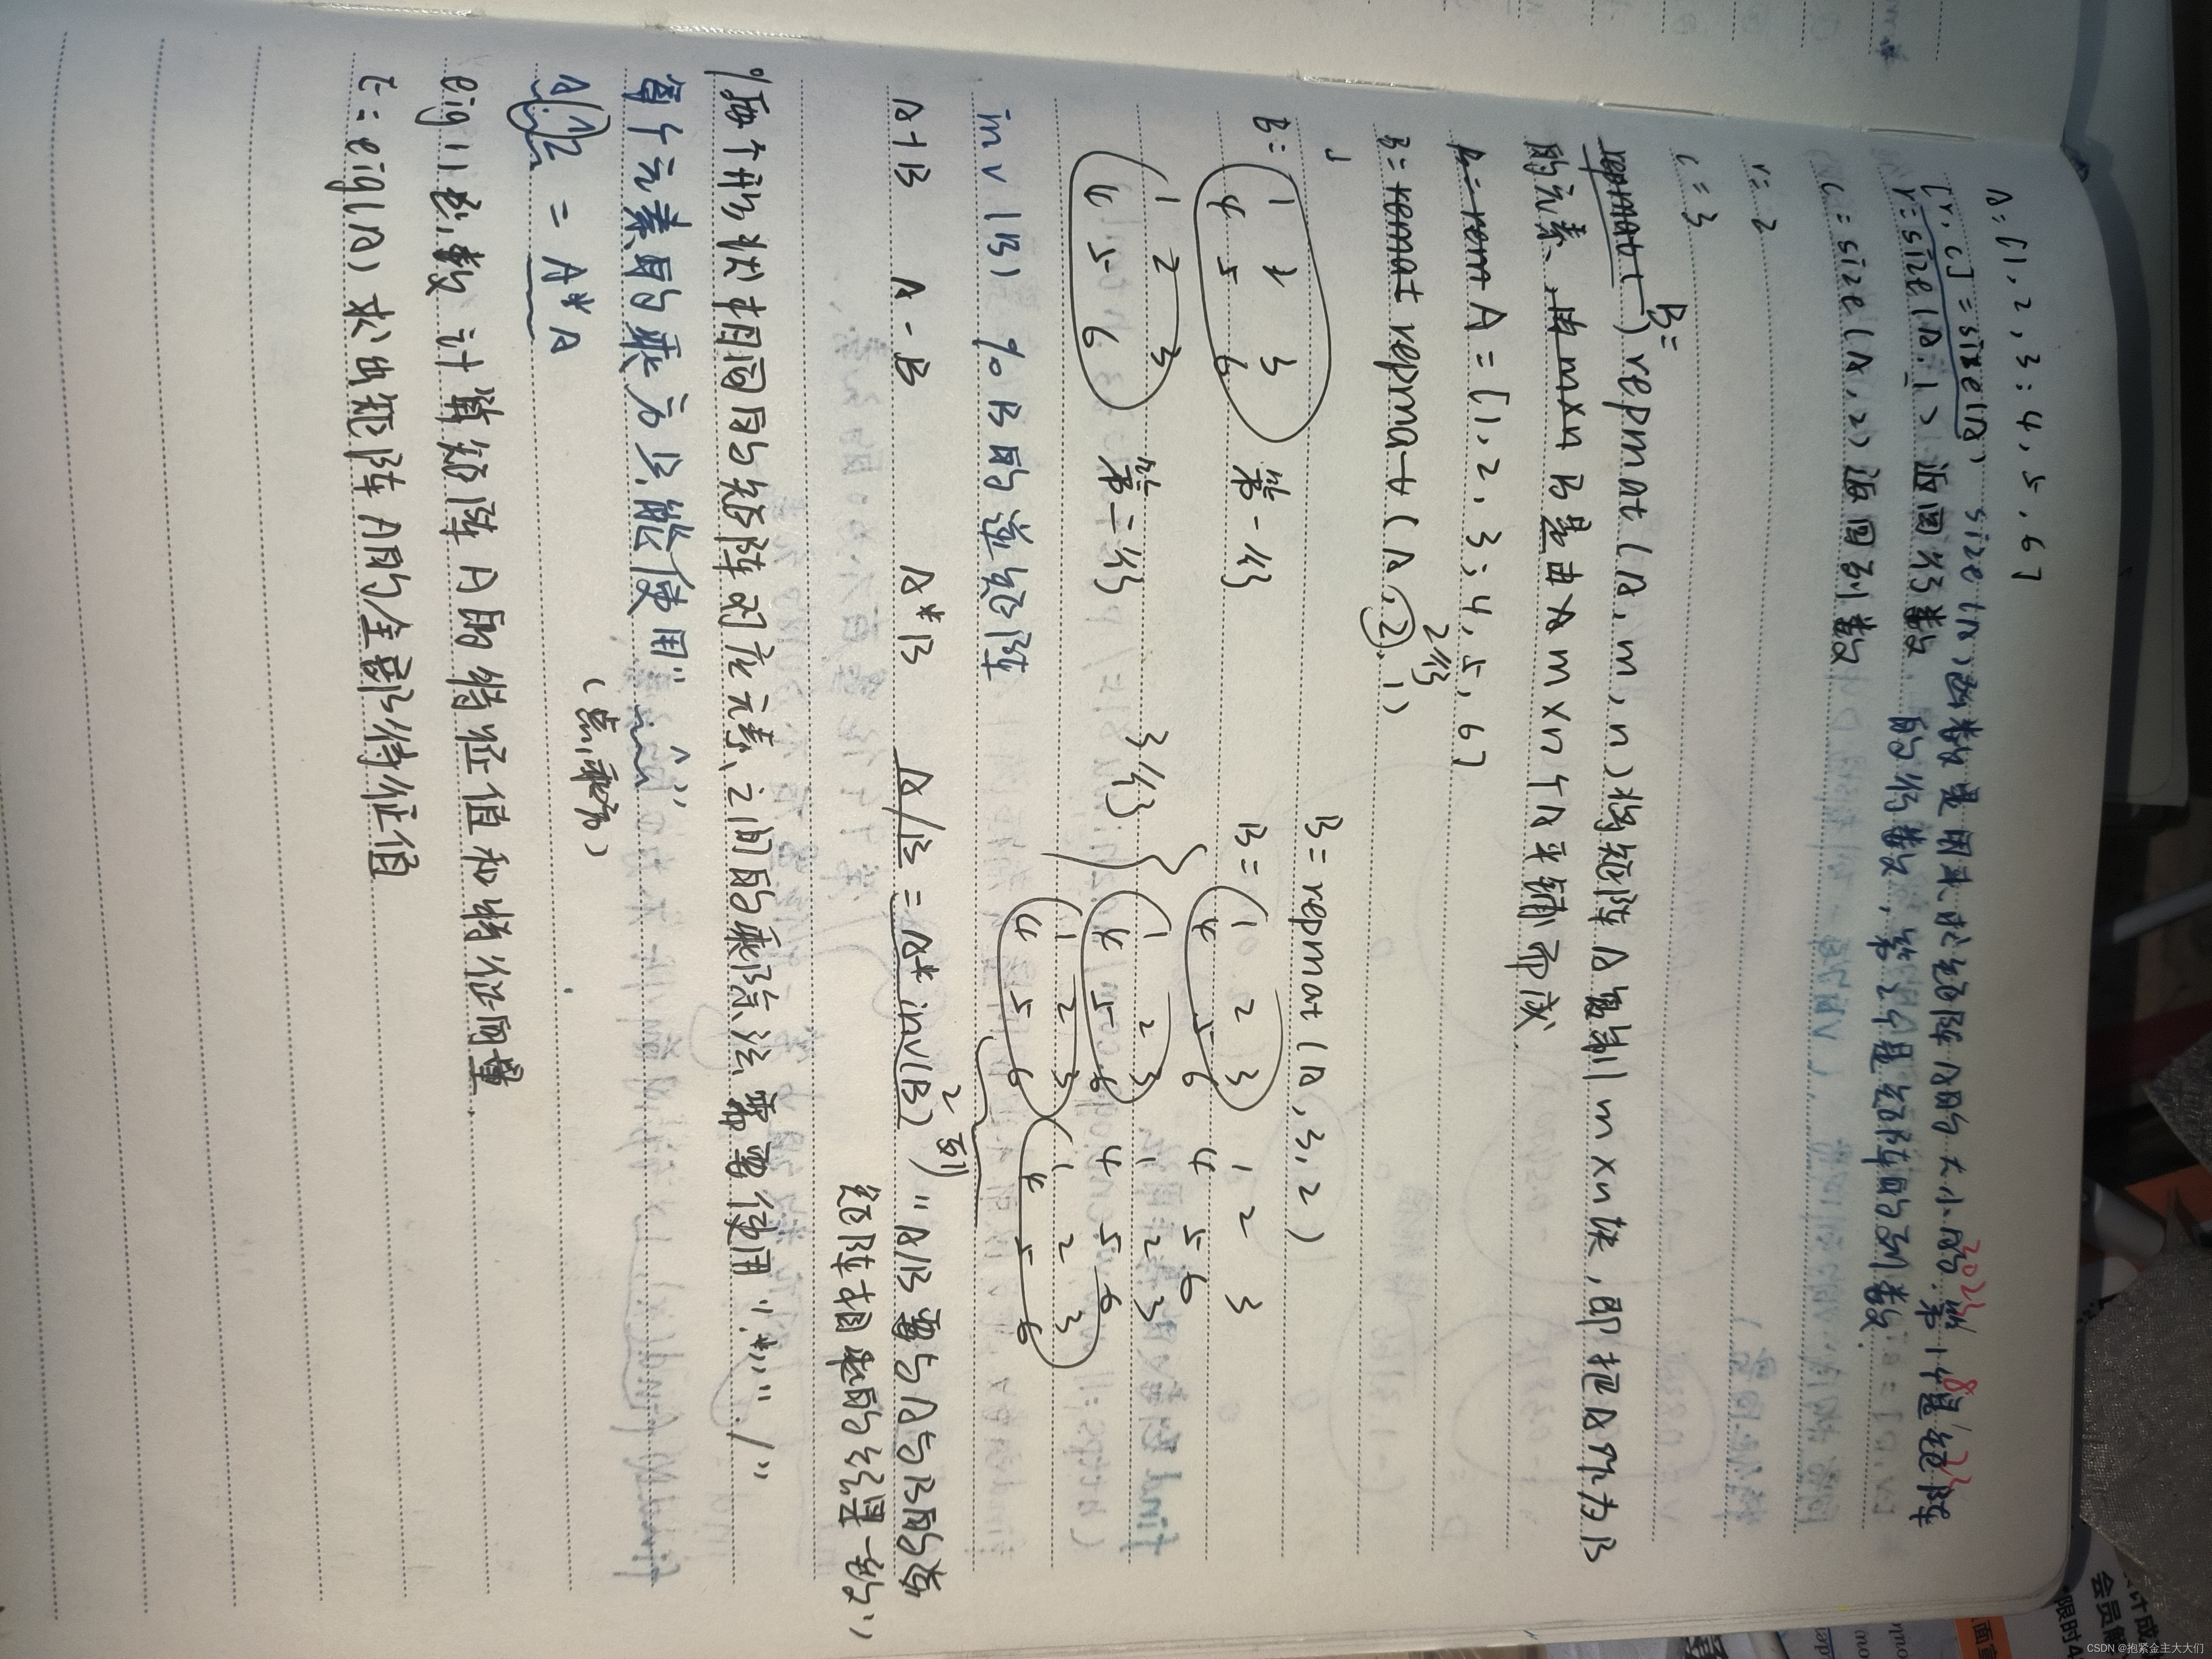 A=[1,2,3;4,5,6]
[r,c]=size(A) size(A)函数是用来求矩阵A的大小的,第1个是矩阵
2023/8/23
的行数,第2个是矩阵的列数.
r=size(A,1) 返回行数
c=size(A,2) 返回列数
r=2
c=3
B=
repmat(A,m,n)将矩阵A复制m×n块,即把A作为B
的元素,B是由m×n个A平铺而成
A=[1,2,3;4,5,6]
2行
B=repmat(A,2,1)
B=repmat(A,3,2)
B=
1 2 3
4 5 6
第一行
1 2 3
4 5 6
第二行
B=
1 2 3 1 2 3
4 5 6 4 5 6
1 2 3 1 2 3
4 5 6 4 5 6
1 2 3 1 2 3
4 5 6 4 5 6
3行
2列
inv(B) % B的逆矩阵
A+B A-B A*B A/B = A*inv(B) "A/B等于A与B的逆
矩阵相乘的结果一样"
%每个形状相同的矩阵对应元素之间的乘除法需要使用".*""./"
每个元素的乘方只能使用".^"
(点乘方)
A^2 = A*A
eig()函数计算矩阵A的特征值和特征向量.
E=eig(A)求出矩阵A的全部特征值
CSDN @抱紧金主大大们